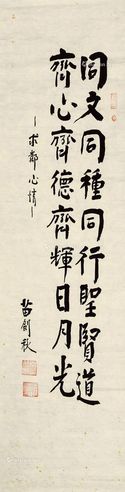 同文同種同行聖賢道
齊心齊德齊輝日月光
－求鄰心情－
苗劍秋